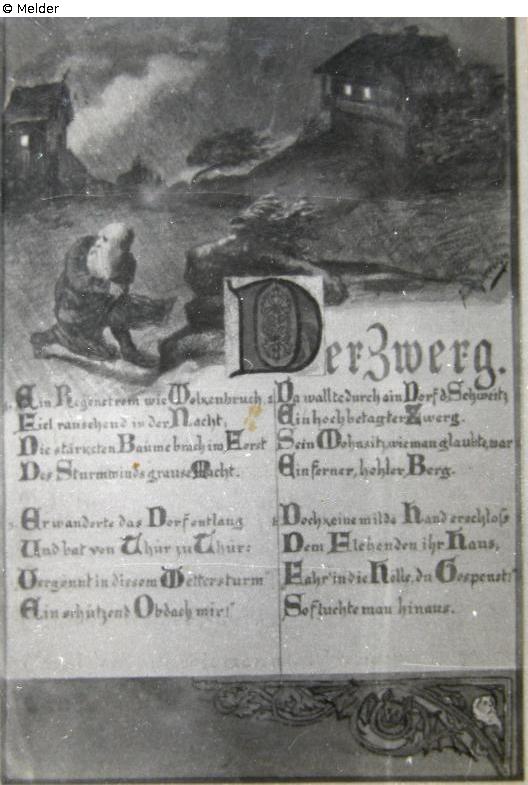 © Melder
Der Zwerg.
1. Ein Regenstrom wie Wolkenbruch,
Fiel rauschend in der Nacht,
Die stärksten Bäume brach im Forst
Des Sturmwinds grause Macht.
2. Da wallte durch ain Dorf d. Schweitz
Ein hochbetagter Zwerg.
Sein Wohnsitz, wie man glaubte, war
Ein ferner, hohler Berg.
3. Er wanderte das Dorf entlang
Und bat von Thür zu Thür:
Vergönnt in diesem Wettersturm"
Ein schützend Obdach mir!"
Doch keine milde Hand erschloß
Dem Flehenden ihr Haus,
Fahr' in die Hölle, du Gespenst!"
So fluchte man hinaus.